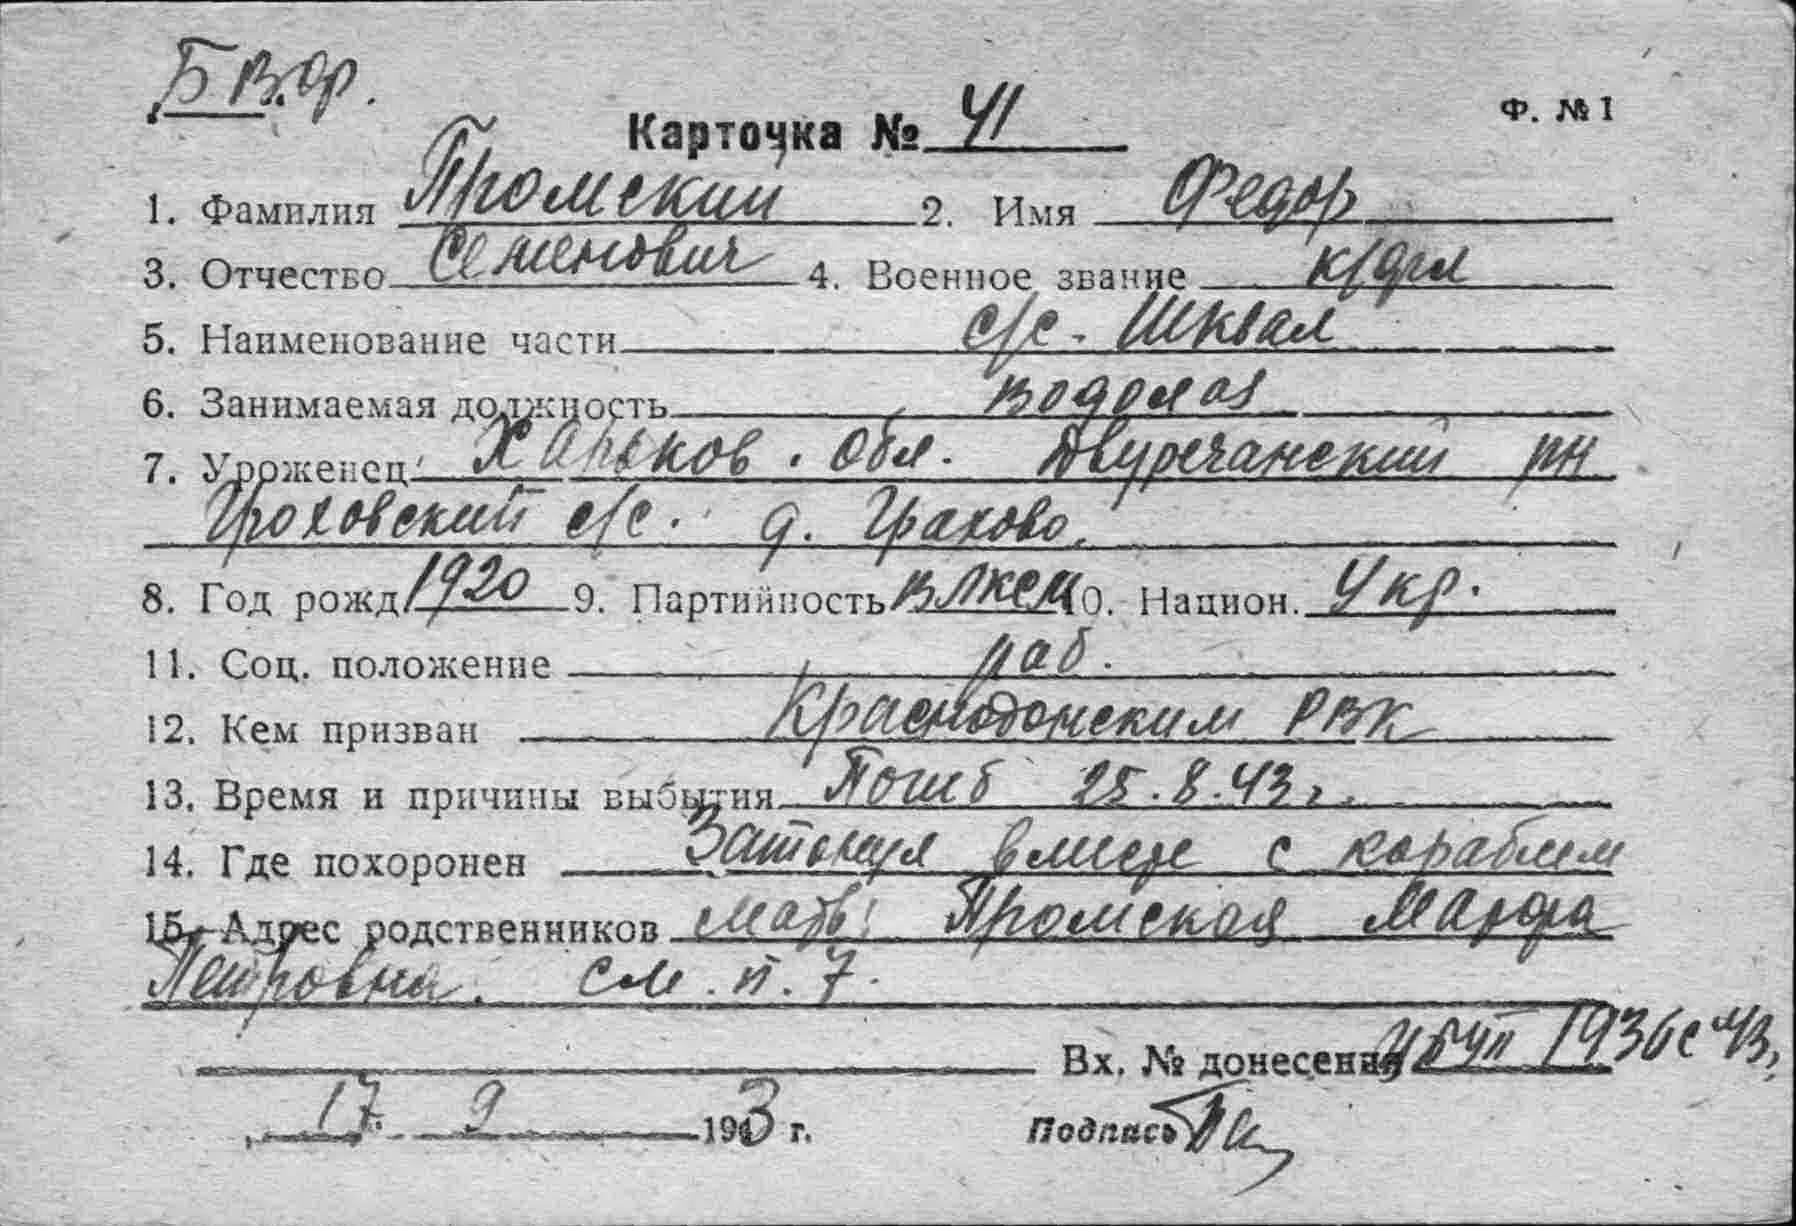 Б В.Ф.
Карточка № 41
Ф. № 1
1. Фамилия Промский 2. Имя Федор
3. Отчество Семенович 4. Военное звание к/фл
5. Наименование части с/с - Шквал
6. Занимаемая должность водолаз
7. Уроженец Харьков. обл. Двуречанский рн
Гроховский с/с. д. Грахово.
8. Год рожд 1920 9. Партийность ВЛКСМ 10. Национ. Укр.
11. Соц. положение раб.
12. Кем призван Краснодонским РВК
13. Время и причины выбытия Погиб 25.8.43 г.
14. Где похоронен Затонул вместе с кораблем
15. Адрес родственников мать: Промская Марфа
Петровна. см. п. 7.
Вх. № донесения 1936с 43
17. 9 1943 г. Подпись